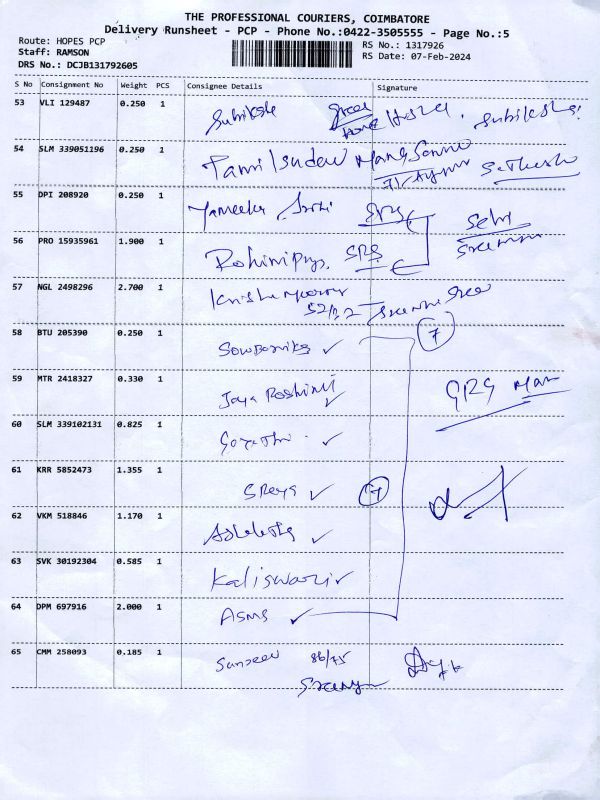 THE PROFESSIONAL COURIERS, COIMBATORE
Delivery Runsheet - PCP - Phone No.:0422-3505555 - Page No.:5
Route: HOPES PCP
RS No.: 1317926
Staff: RAMSON
RS Date: 07-Feb-2024
DRS No.: DCJB131792605
S No Consignment No Weight PCS Consignee Details Signature
53 VLI 129487 0.250 1 Subiksha
54 SLM 339051196 0.250 1
55 DPI 208920 0.250 1 SRS
56 PRO 15935961 1.900 1 SRS
57 NGL 2498296 2.700 1
58 BTU 205390 0.250 1 Sowbarnika ✓ 7
59 MTR 2418327 0.330 1 Jaya Roshini ✓ GRG
60 SLM 339102131 0.825 1 ✓
61 KRR 5852473 1.355 1 Sreya ✓ 7
62 VKM 518846 1.170 1 ✓
63 SVK 30192304 0.585 1 Kaliswari ✓
64 DPM 697916 2.000 1 Asms ✓
65 CMM 258093 0.185 1 Sanjeev 86/75